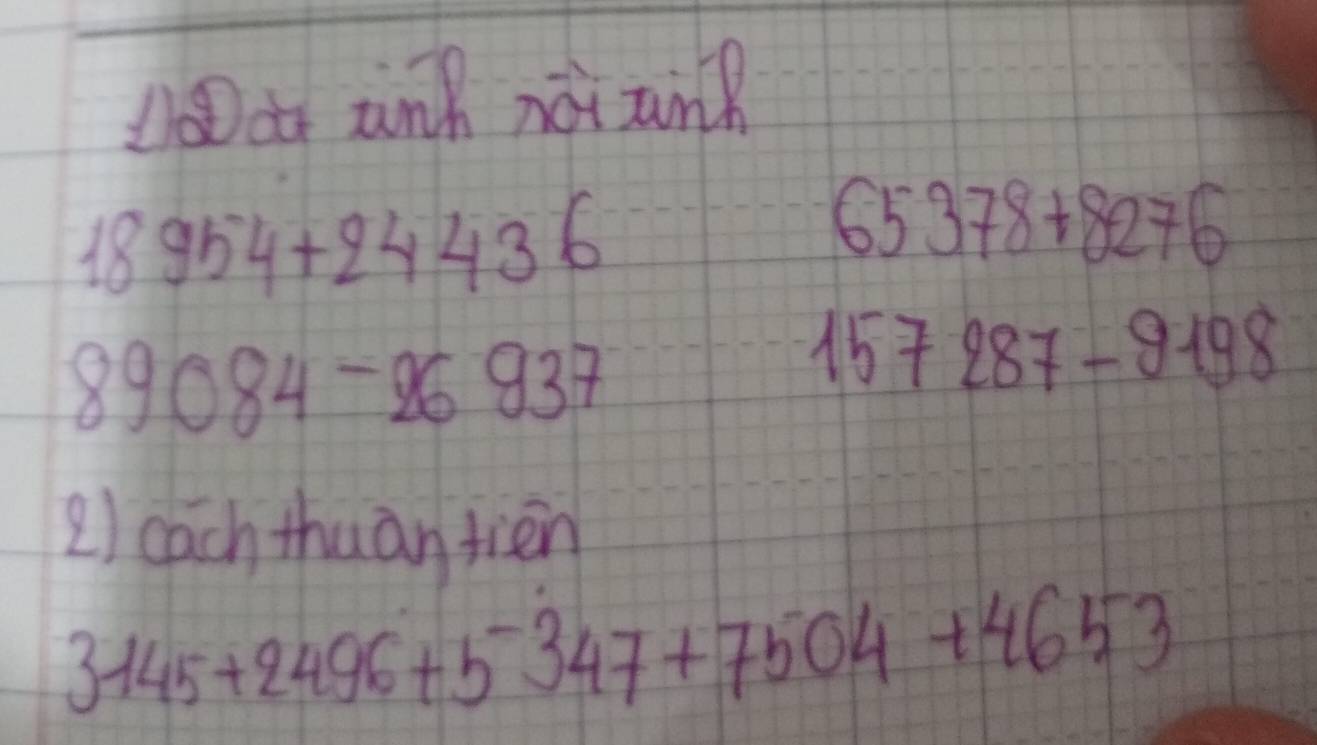 1) Đặt tính rồi tính
18 954+24 436 65 378+8276
89 084-26 937 157 287-9198
2) cách thuận tiện
3145+2496+5347+7504+4653